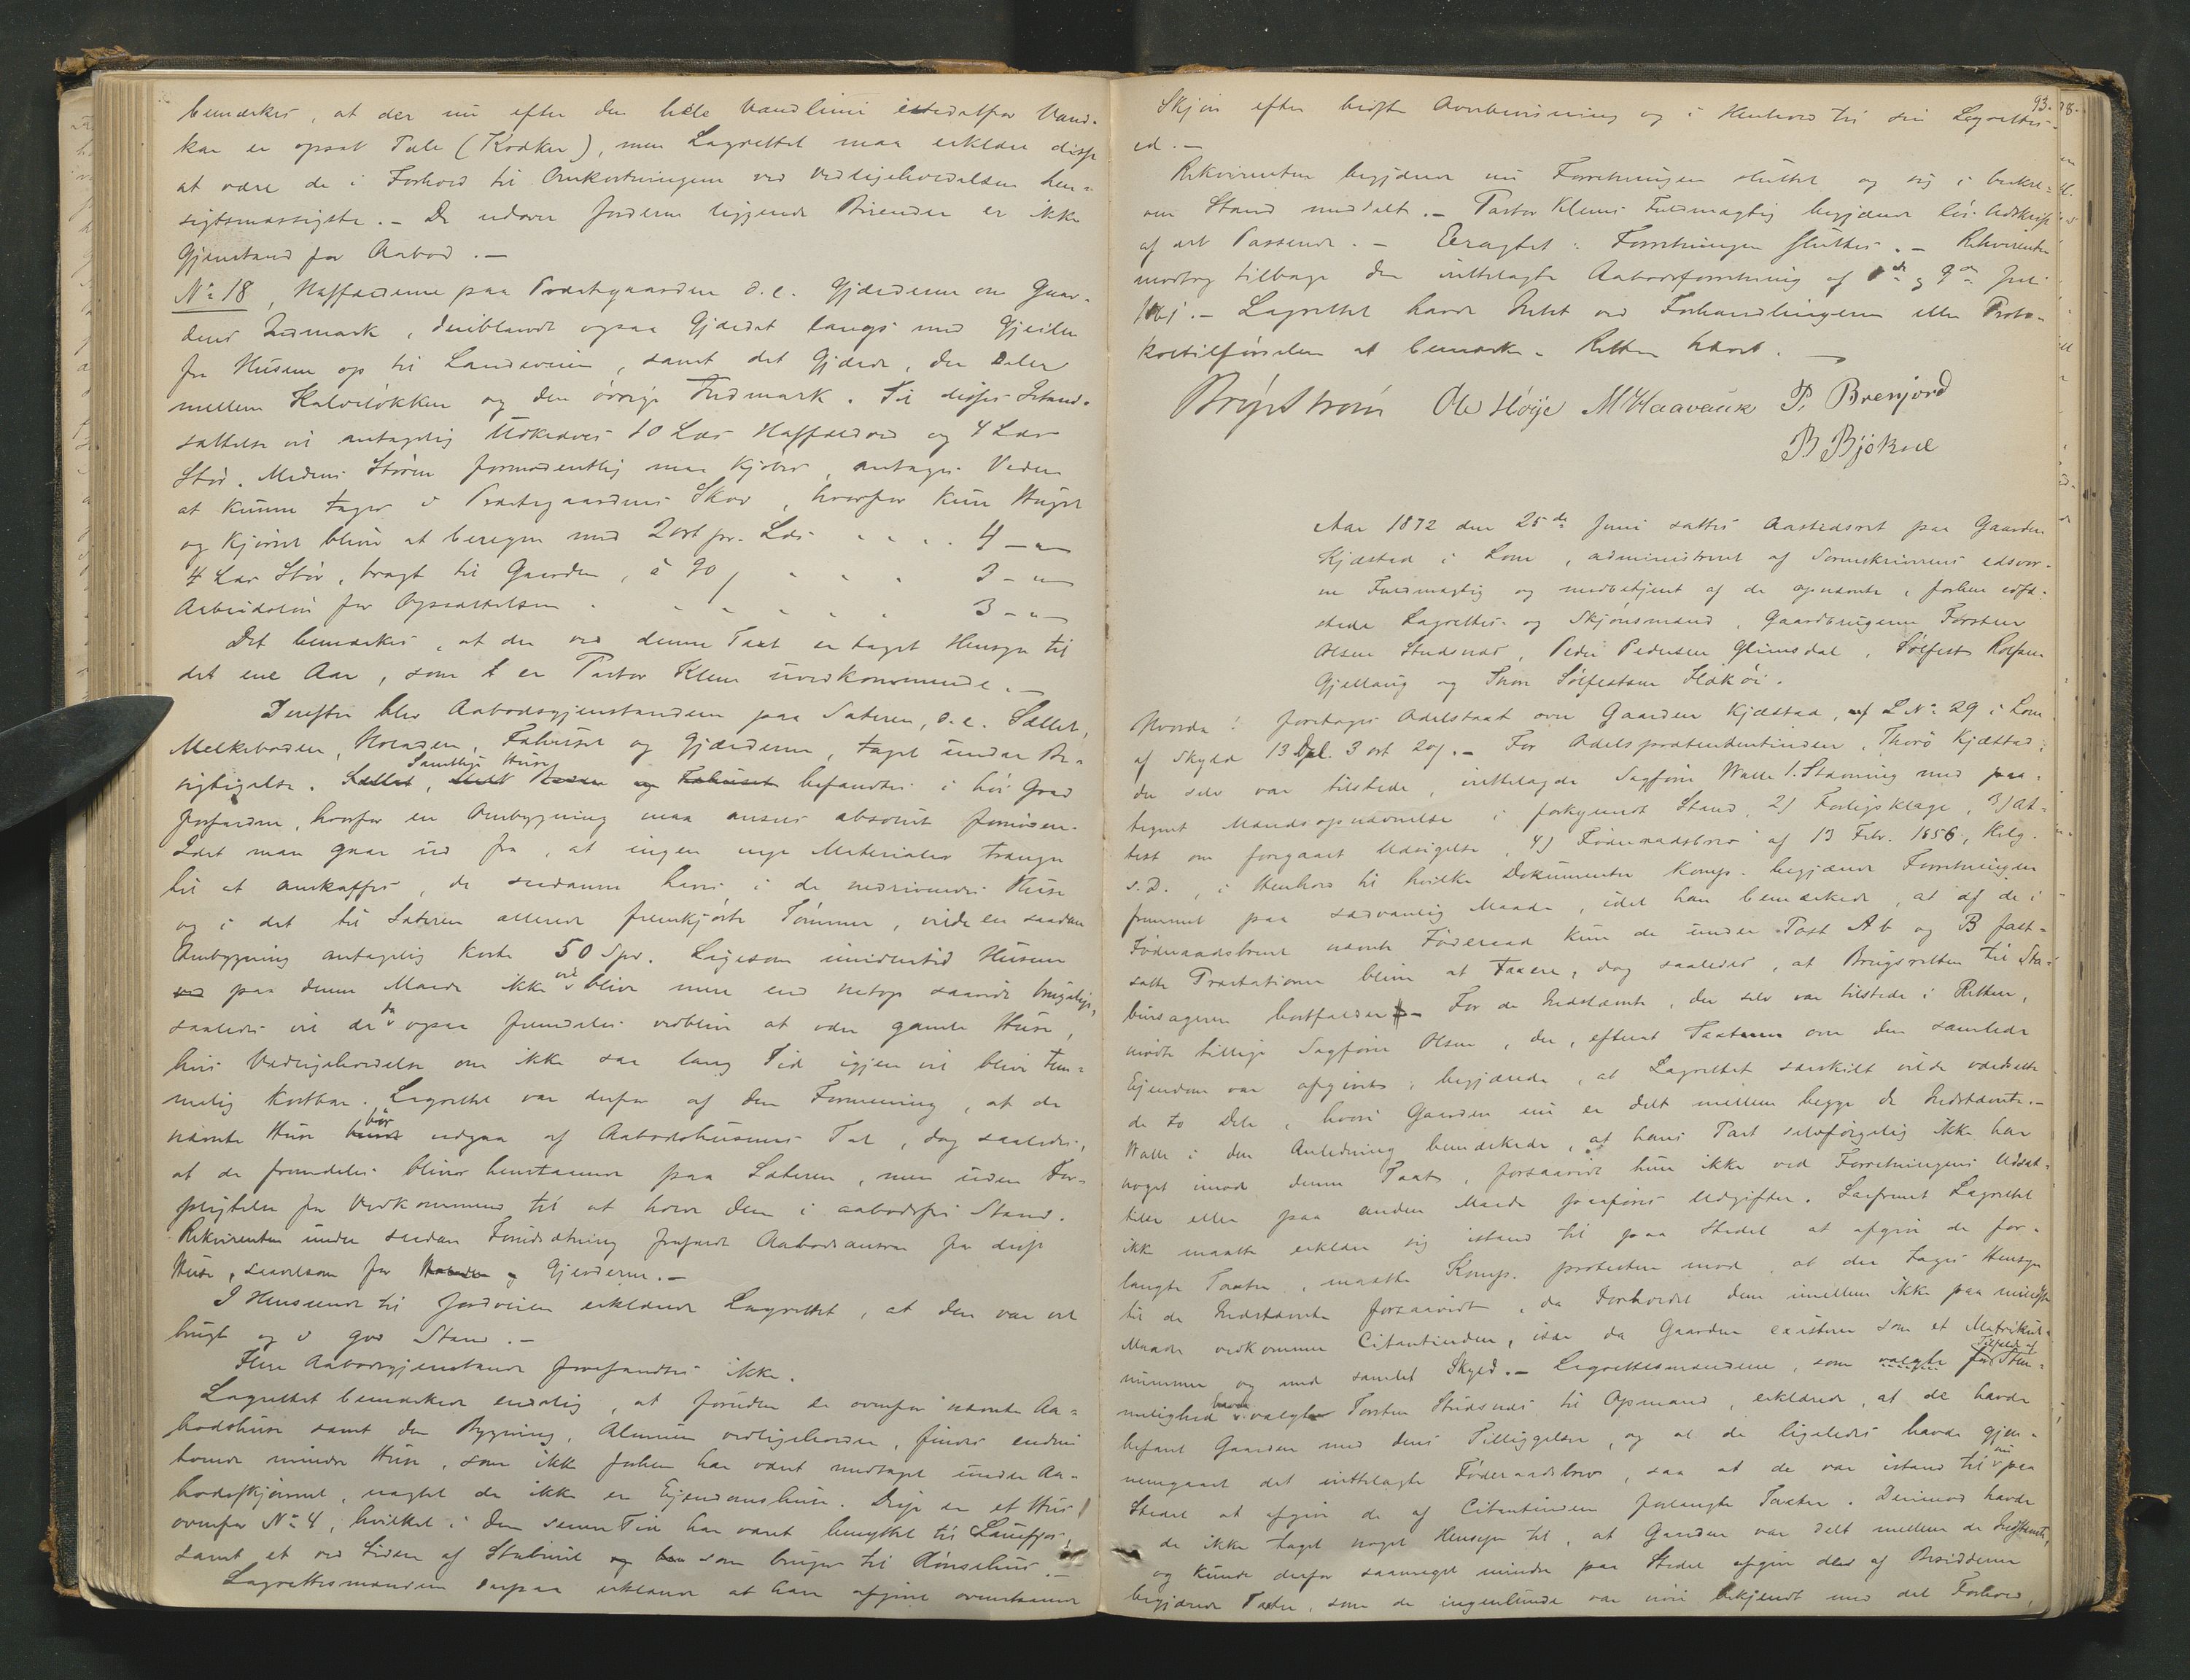 bemærkes, at der nu efter den hele Vandlinie istedetfor Vand-
kar er opsat Pæle (Krakker), men Lagrettet maa erklære disse
at være de i Forhold til Omkostningerne ved Vedligeholdelsen hen-
sigtsmæssigste. - De udover Jorderne liggende Strender er ikke
Gjenstand for Aabod. -
No 18, Haffælderne paa Præstegaarden d.e. Gjærderne om Gaar-
dens Indmark, deriblandt ogsaa Gjærdet langs med Gjeilen
fra Husene op til Landeveien, samt det Gjærde, der deler
mellem Kalveløkken og den øvrige Indmark. Til disses Istand-
sættelse vil antagelig udkræves 10 Læs Haffældved og 4 Læs
Stør. Medens Støren formodentlig maa kjøbes, antages Veden
at kunne tages i Præstegaardens Skov, hvorfor kun Hugst
og Kjørsel bliver at beregne med 2 ort pr. Læs - - - 4 - "
4 Læs Stør, bragt til Gaarden, à 90 ʃ - - - 3 - "
Arbeidsløn for Opsættelsen - - - - - - 3 - "
Det bemærkes, at der ved denne Taxt er taget Hensyn til
det ene Aar, som er Pastor Klem uvedkommende. -
Derefter blev Aabodsgjenstandene paa Sæteren, d.e. Sællet,
Melkeboden, Høladen, Fæhuset og Gjærderne, taget under Be-
Samtlige Huse
sigtigelse. Sællet, og Fæhuset befandtes i høi Grad
forfaldne, hvorfor en Ombygning maa ansees absolut fornøden.
Idet man gaar ud fra, at ingen nye Materialer trænges
til at anskaffes, da saadanne haves i de nedrivendes Huse
og i det til Sæteren allerede fremkjørte Tømmer, vilde en saadan
Ombygning antagelig koste 50 Spd. Ligesom imidlertid Husene
paa denne Maade ikke vil blive mere end netop saavidt brugelige,
saaledes vil de da ogsaa fremdeles vedblive at være gamle Huse,
hvis Vedligeholdelse om ikke saa lang Tid igjen vil blive tem-
melig kostbar. Lagrettet var derfor af den Formening, at de
nævnte Huse bør udgaa af Aabodshusenes Tal, dog saaledes,
at de fremdeles bliver henstaaende paa Sæteren, men uden For-
pligtelse for Vedkommende til at holde dem i aabodsfri Stand.
Rekvirenten under saadan Forudsætning frafaldt Aabodsansvar for disse
Huse, saavelsom for Gjerderne. -
I Henseende til Jordveien erklærede Lagrettet, at den var vel
brugt og i god Stand. -
Flere Aabodsgjenstande forefandtes ikke.
Lagrettet bemærkede endelig, at foruden de ovenfor nævnte Aa-
bodshuse samt den Bygning, Alumnen vedligeholder, findes endnu
tvende mindre Huse, som ikke forhen har været medtaget under Aa-
bodsskjønnet, uagtet de ikke er Ejendomshuse. Disse er et Hus
ovenfor No 4, hvilket i den senere Tid har været benyttet til Sauefjøs,
samt et ved Siden af Stabburet som bruges til Hønsehus. -
Lagrettesmændene derpaa erklærede at have afgivet ovenstaaende
93.
Skjøn efter bedste Overbevisning og i Henhold til sin Lagrettes-
ed. -
Rekvirenten begjærede nu Forretningen sluttet og sig i beskre-
ven Stand meddelt. - Pastor Klems Fuldmægtig begjærede lös. Udskrift
af det Passerede. - Eragtet: Forretningen sluttes. - Rekvirenten
modtog tilbage den irettelagte Aabodsforretning af 8de og 9de Juli
1861. - Lagrettet havde Intet ved Forhandlingerne eller Proto-
koltilførselen at bemærke. Retten hævet. -
Ole Høije M Haavaak P. Brenjord
B Bjøkne
Aar 1872 den 25de Juni sattes Aastedsret paa Gaarden
Kjæstad i Lom, administreret af Sorenskriverens edsvor-
ne Fuldmægtig og medbetjent af de opnævnte, forhen edfæ-
stede Lagrettes- og Skjønsmænd, Gaardbrugerne Torsten
Olsen Studsnæs, Peder Pedersen Glimsdal, Sølfest Rolfsen
Gjeilaug og Thor Sølfestsen Flækøi.
Hvorda: foretages Odelstaxt over Gaarden Kjæstad, L No 29 i Lom
af Skyld 13 Dal. 3 ort 20 ʃ. - For Odelsprætendentinden, Thorø Kjæstad,
der selv var tilstede, irettelagde Sagfører Walle 1. Stævning med paa-
tegnet Mandsopnævnelse i forkyndt Stand, 2) Forligsklage, 3) At-
test om foregaaet Udsigelse, 4) Føderaadsbrev af 13 Febr. 1856, thlg.
s.D., i Henhold til hvilke Dokumenter Komp. begjærede Forretningen
fremmet paa sædvanlig Maade, idet han bemærkede, at af de i
Føderaadsbrevet nævnte Føderaad kun de under Post A b og B fast-
satte Præstationer bliver at taxere, dog saaledes, at Brugsretten til Sta-
burageren bortfalder. - For de Indstævnte, der selv var tilstede i Retten,
mødte tillige Sagfører Olsen, der, efterat Taxten over den samlede
Ejendom var afgivet, begjærede, at Lagrettet særskilt vilde værdsætte
de to Dele, hvori Gaarden nu er delt mellem begge de Indstævnte. -
Walle i den Anledning bemærkede, at hans Part selvfølgelig ikke har
noget imod denne Taxt, forsaavidt hun ikke ved Forretningens Udsæt-
telse eller paa anden Maade paaføres Udgifter. Saafremt Lagrettet
ikke maatte erklære sig istand til paa Stedet at afgive de for-
langte Taxter, maatte Komp. protestere mod, at der tages Hensyn
til de Indstævnte forsaavidt, da Forholdet dem imellem ikke paa mindste
Maade vedkommer Citantinden, især da Gaarden existerer som et Matrikul-
nummer og med samlet Skyld. - Lagrettesmændene, som valgte for Tilfælde af Stem-
melighed havde valgt Torsten Studsnæs til Opmand, erklærede, at de havde
befaret Gaarden med dens Tilliggelser, og at de ligeledes havde gjen-
nemgaaet det irettelagte Føderaadsbrev, saa at de var istand til nu paa
Stedet at afgive de af Citantinden forlangte Taxter. Derimod havde
de ikke taget noget Hensyn til, at Gaarden var delt mellem de Indstævnte,
og kunde derfor saameget mindre paa Stedet afgive de af Besidderne
begjærede Taxter, som de ingenlunde var nøie bekjendt med det Forhold,